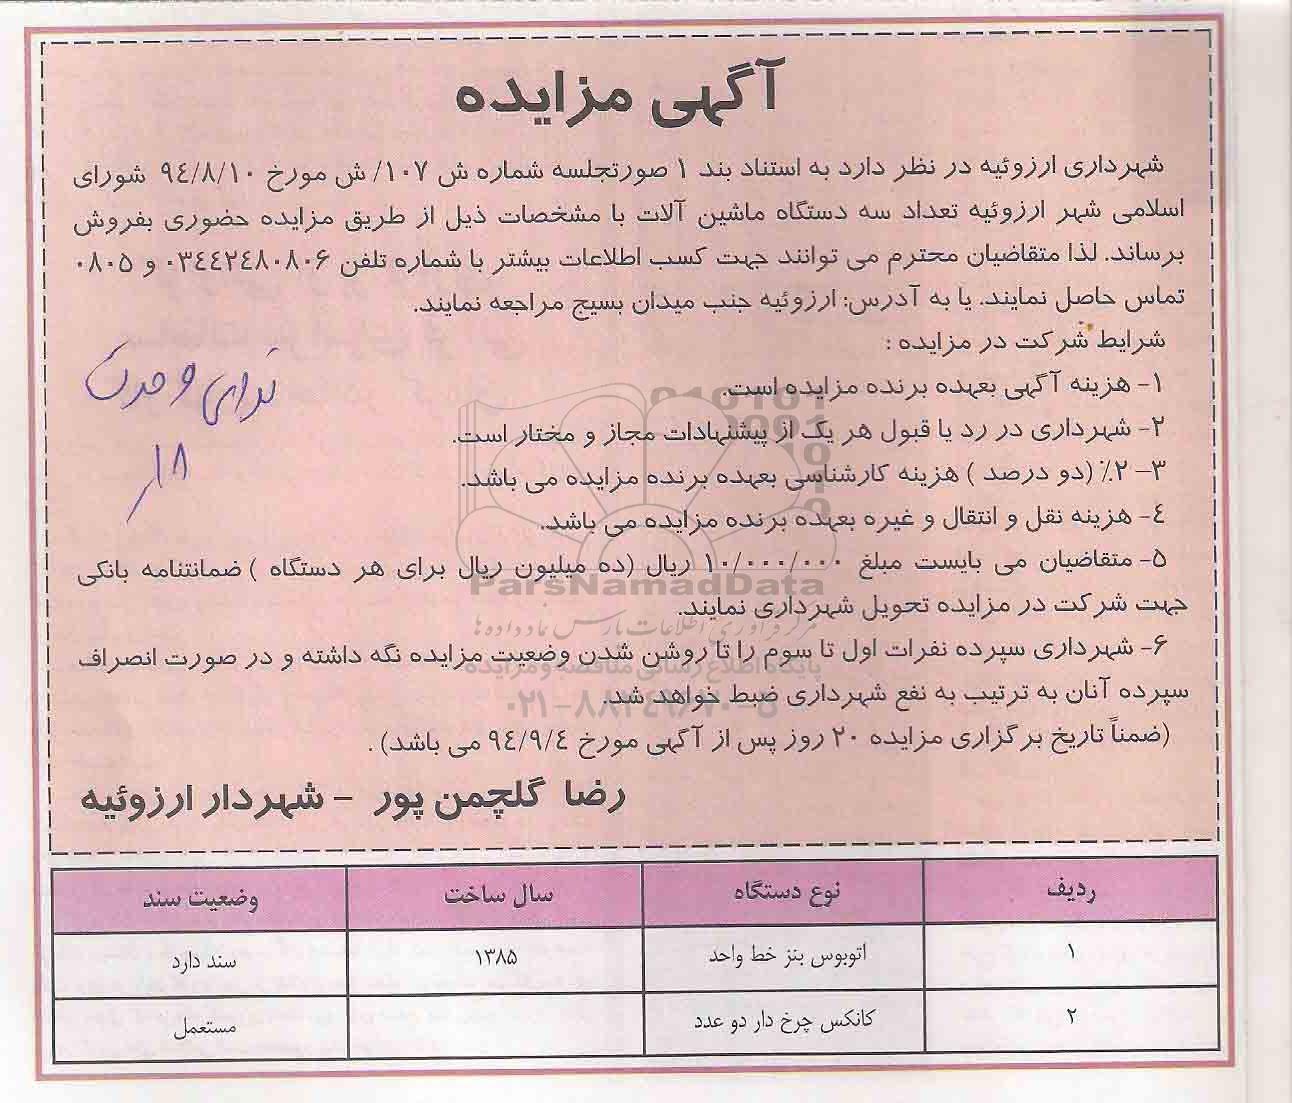 آگهی مزایده
شهرداری ارزوئیه در نظر دارد به استناد بند ۱ صورتجلسه شماره ش ۱۰۷/ ش مورخ ۹٤/۸/۱۰ شورای
اسلامی شهر ارزوئیه تعداد سه دستگاه ماشین آلات با مشخصات ذیل از طریق مزایده حضوری بفروش
برساند. لذا متقاضیان محترم می توانند جهت کسب اطلاعات بیشتر با شماره تلفن ۰۳٤٤۲٤۸۰۸۰۶ و ۰۸۰۵
تماس حاصل نمایند. یا به آدرس: ارزوئیه جنب میدان بسیج مراجعه نمایند.
شرایط شرکت در مزایده :
۱- هزینه آگهی بعهده برنده مزایده است.
۲- شهرداری در رد یا قبول هر یک از پیشنهادات مجاز و مختار است.
۳- ۲٪ (دو درصد ) هزینه کارشناسی بعهده برنده مزایده می باشد.
٤- هزینه نقل و انتقال و غیره بعهده برنده مزایده می باشد.
۵- متقاضیان می بایست مبلغ ۱۰/۰۰۰/۰۰۰ ریال (ده میلیون ریال برای هر دستگاه ) ضمانتنامه بانکی
جهت شرکت در مزایده تحویل شهرداری نمایند.
۶- شهرداری سپرده نفرات اول تا سوم را تا روشن شدن وضعیت مزایده نگه داشته و در صورت انصراف
سپرده آنان به ترتیب به نفع شهرداری ضبط خواهد شد.
(ضمناً تاریخ برگزاری مزایده ۲۰ روز پس از آگهی مورخ ۹٤/۹/٤ می باشد) .
رضا گلچمن پور - شهردار ارزوئیه
ندای وحدت
۱۸
ParsNamadData
مرکز فرآوری اطلاعات پارس نماد داده ها
پایگاه اطلاع رسانی مناقصه و مزایده
ردیف نوع دستگاه سال ساخت وضعیت سند
۱ اتوبوس بنز خط واحد ۱۳۸۵ سند دارد
۲ کانکس چرخ دار دو عدد مستعمل